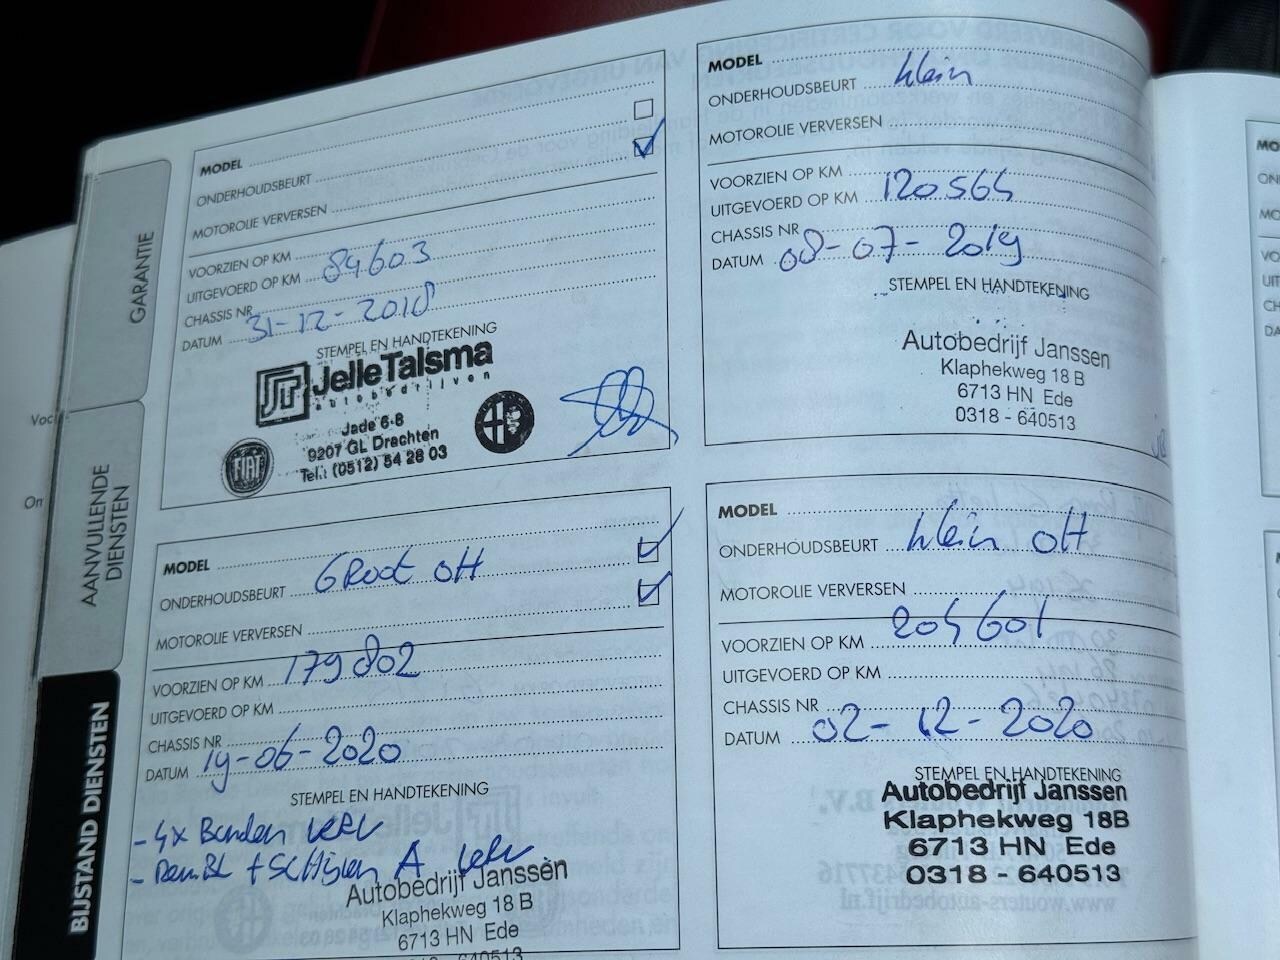 GARANTIE
AANVULLENDE
DIENSTEN
BIJSTAND DIENSTEN
MODEL
ONDERHOUDSBEURT
MOTOROLIE VERVERSEN
VOORZIEN OP KM
UITGEVOERD OP KM 84603
CHASSIS NR
DATUM 31-12-2018
STEMPEL EN HANDTEKENING
JT JelleTalsma
autobedrijven
Jade 6-8
9207 GL Drachten
Tel.: (0512) 54 28 03
FIAT
MODEL
ONDERHOUDSBEURT klein
MOTOROLIE VERVERSEN
VOORZIEN OP KM
UITGEVOERD OP KM 120565
CHASSIS NR
DATUM 08-07-2019
STEMPEL EN HANDTEKENING
Autobedrijf Janssen
Klaphekweg 18 B
6713 HN Ede
0318 - 640513
MODEL
ONDERHOUDSBEURT GRoot OH
MOTOROLIE VERVERSEN
VOORZIEN OP KM 179802
UITGEVOERD OP KM
CHASSIS NR
DATUM 19-06-2020
STEMPEL EN HANDTEKENING
- 4x Banden
- + Schijven A
Autobedrijf Janssen
Klaphekweg 18 B
6713 HN Ede
0318 - 640513
MODEL
ONDERHOUDSBEURT klein OH
MOTOROLIE VERVERSEN
VOORZIEN OP KM 204601
UITGEVOERD OP KM
CHASSIS NR
DATUM 02-12-2020
STEMPEL EN HANDTEKENING
Autobedrijf Janssen
Klaphekweg 18B
6713 HN Ede
0318 - 640513